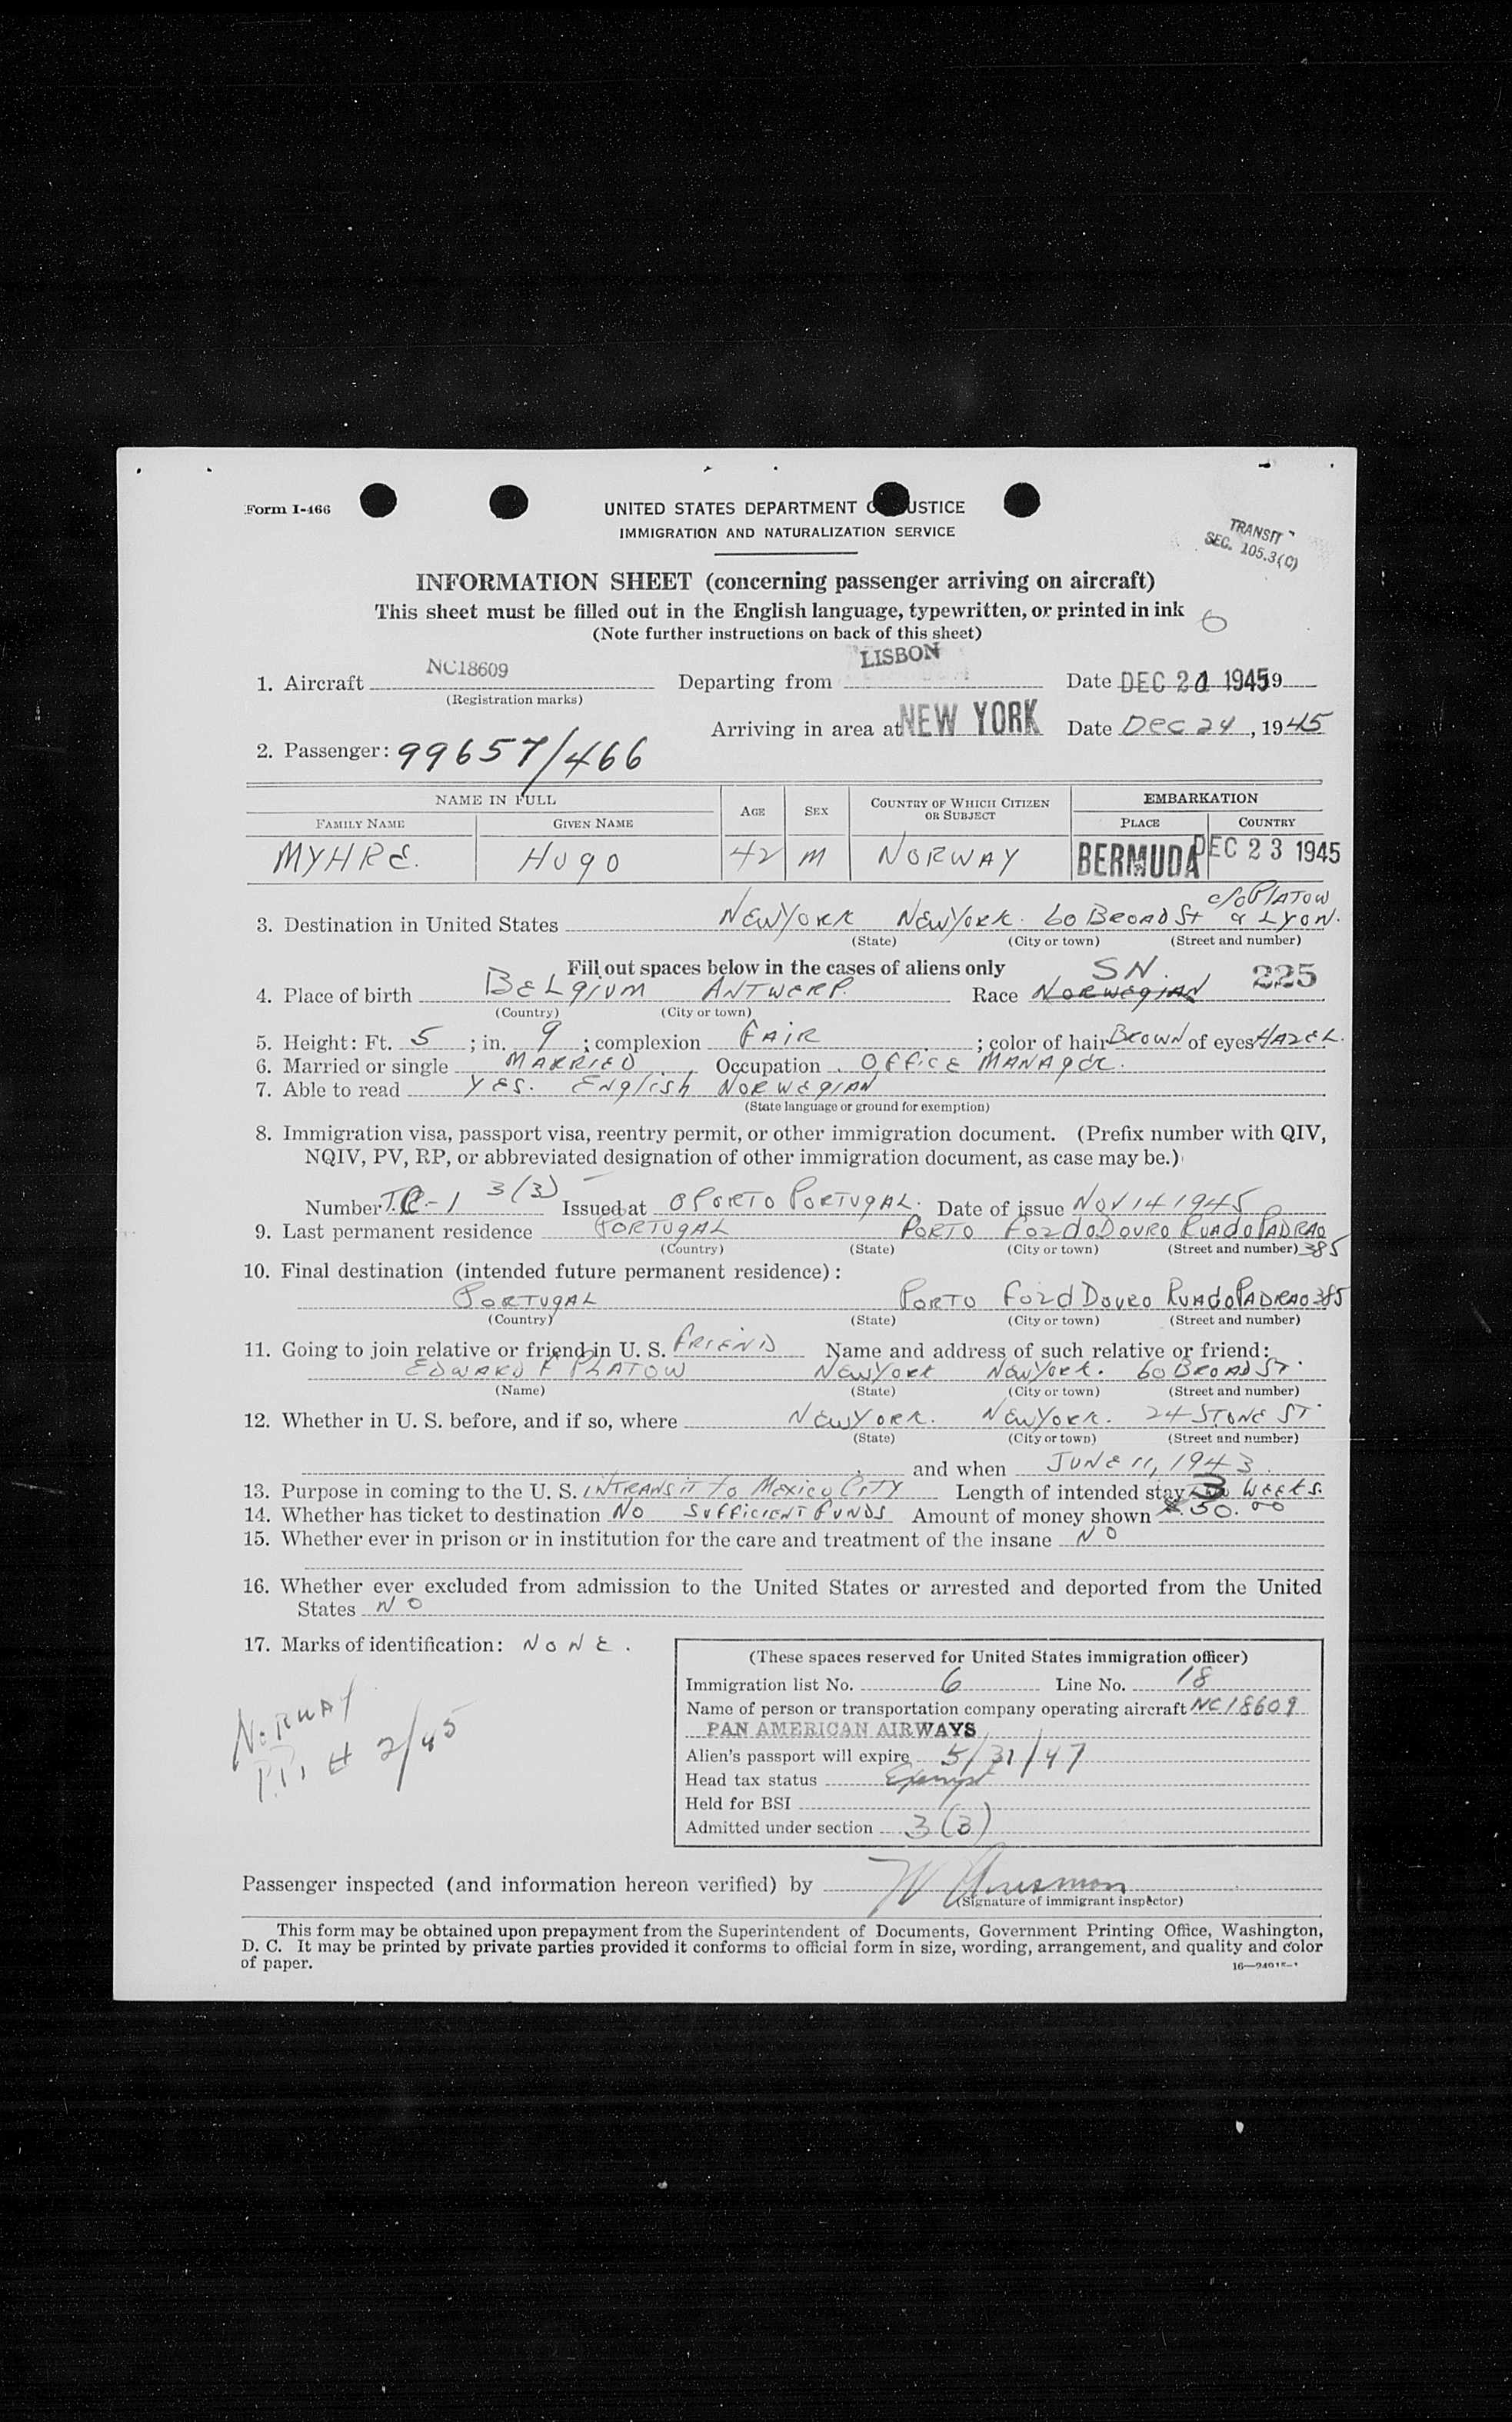 Form I-466
UNITED STATES DEPARTMENT O USTICE
IMMIGRATION AND NATURALIZATION SERVICE
TRANSIT
SEC. 105.3(C)
INFORMATION SHEET (concerning passenger arriving on aircraft)
This sheet must be filled out in the English language, typewritten, or printed in ink
(Note further instructions on back of this sheet)
1. Aircraft NC18609 Departing from LISBON Date DEC 21 1945 9
(Registration marks)
Arriving in area at NEW YORK Date DEC 24, 1945
2. Passenger: 99657/466
NAME IN FULL AGE SEX COUNTRY OF WHICH CITIZEN OR SUBJECT EMBARKATION
FAMILY NAME GIVEN NAME PLACE COUNTRY
MYHRE. HUGO 42 M NORWAY BERMUDA DEC 23 1945
c/o PLATOW
3. Destination in United States NEW YORK NEW YORK. 60 BROAD ST & LYON.
(State) (City or town) (Street and number)
Fill out spaces below in the cases of aliens only SN. 225
4. Place of birth BELGIUM ANTWERP. Race NORWEGIAN
(Country) (City or town)
5. Height: Ft. 5 ; in. 9 ; complexion FAIR ; color of hair BROWN of eyes HAZEL.
6. Married or single MARRIED Occupation OFFICE MANAGER.
7. Able to read YES. ENGLISH NORWEGIAN
(State language or ground for exemption)
8. Immigration visa, passport visa, reentry permit, or other immigration document. (Prefix number with QIV,
NQIV, PV, RP, or abbreviated designation of other immigration document, as case may be.)
Number -1 3(3) Issued at OPORTO PORTUGAL. Date of issue NOV 14 1945
9. Last permanent residence PORTUGAL PORTO FOZ DO DOURO RUA DO PADRAO
(Country) (State) (City or town) (Street and number) 385
10. Final destination (intended future permanent residence):
PORTUGAL PORTO FOZ D DOURO RUA DO PADRAO 385
(Country) (State) (City or town) (Street and number)
11. Going to join relative or friend in U. S. FRIEND Name and address of such relative or friend:
EDWARD F PLATOW NEW YORK NEW YORK. 60 BROAD ST.
(Name) (State) (City or town) (Street and number)
12. Whether in U. S. before, and if so, where NEW YORK. NEW YORK. 24 STONE ST.
(State) (City or town) (Street and number)
and when JUNE 11, 1943.
13. Purpose in coming to the U. S. INTRANSIT TO MEXICO CITY Length of intended stay 3 WEEKS.
14. Whether has ticket to destination NO SUFFICIENT FUNDS Amount of money shown $ 50.00
15. Whether ever in prison or in institution for the care and treatment of the insane NO
16. Whether ever excluded from admission to the United States or arrested and deported from the United
States NO
17. Marks of identification: NONE.
(These spaces reserved for United States immigration officer)
Immigration list No. 6 Line No. 18
Name of person or transportation company operating aircraft NC18609
PAN AMERICAN AIRWAYS
Alien's passport will expire 5/31/47
Head tax status Exempt
Held for BSI
Admitted under section 3(3)
NORWAY
P.P. # 2/45
Passenger inspected (and information hereon verified) by
(Signature of immigrant inspector)
This form may be obtained upon prepayment from the Superintendent of Documents, Government Printing Office, Washington,
D. C. It may be printed by private parties provided it conforms to official form in size, wording, arrangement, and quality and color
of paper.